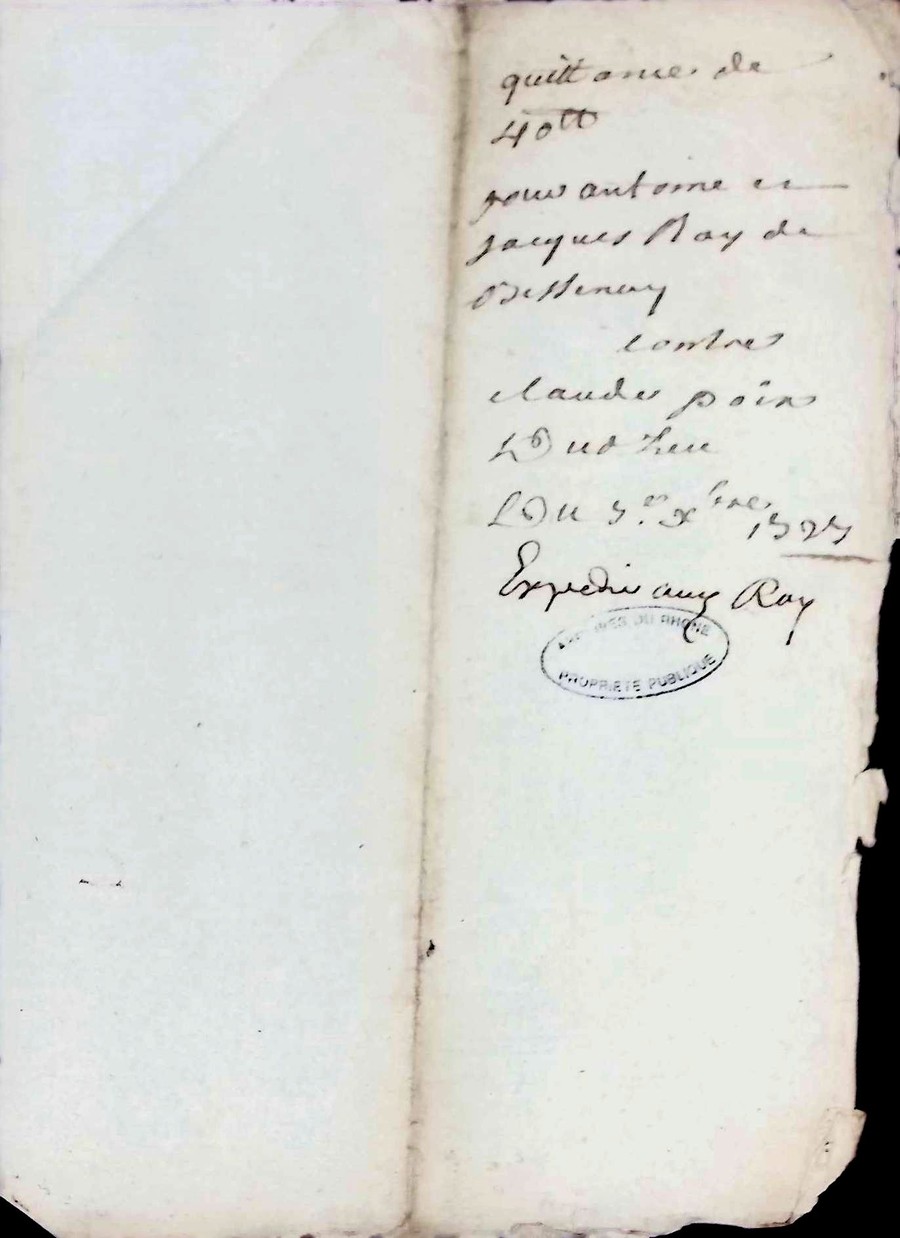 quittance de
40tt
pour antoine et
Jacques Ray de
Bessenay
contre
claude poin
Dud lieu
Du xbre
Expedié aux Ray
ARCHIVES DU RHÔNE
PROPRIÉTÉ PUBLIQUE